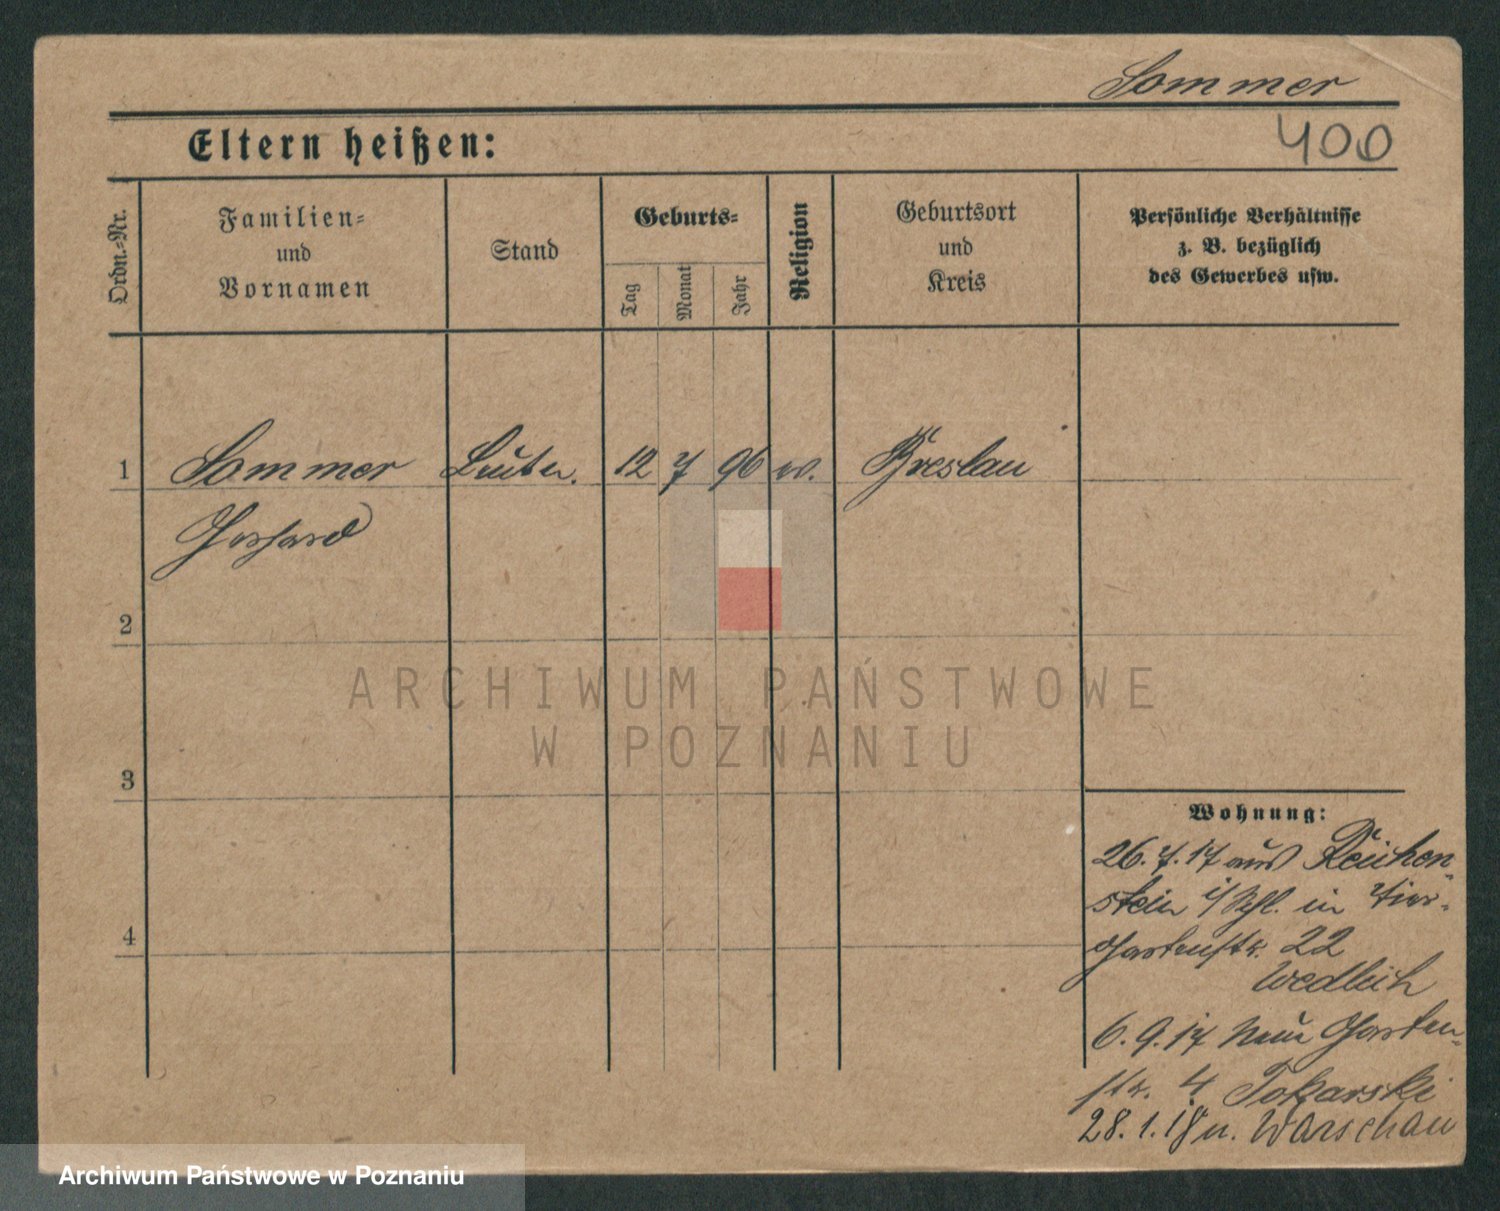 Sommer
Eltern heißen:
400
Ordn.-Nr.
Familien-
und
Vornamen
Stand
Geburts-
Tag
Monat
Jahr
Religion
Geburtsort
und
Kreis
Persönliche Verhältnisse
z. B. bezüglich
des Gewerbes usw.
1 Sommer Leutn. 12 7 96 ev. Breslau
Gerhard
2
3
4
Wohnung:
26.7.17 aus Reichen-
stein i/Schl. in Tier-
gartenstr. 22
Wedlich
6.9.17 Neue Garten-
str. 4 Tokarski
28.1.18 n. Warschau
ARCHIWUM PAŃSTWOWE
W POZNANIU
Archiwum Państwowe w Poznaniu